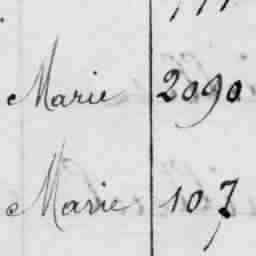 Marie 2090
Marie 107